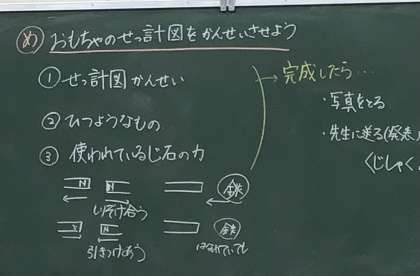 め おもちゃのせっ計図をかんせいさせよう
① せっ計図かんせい
② ひつようなもの
③ 使われているじ石の力
N N 鉄
しりぞけ合う
N 鉄
引きつけあう はなれていても
→完成したら…
・写真をとる
・先生に送る(発表
〈じしゃく